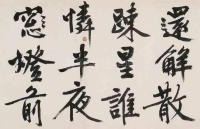 還解散
踈星誰
憐半夜
窓燈前